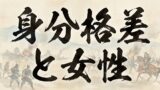 身分格差
と女性